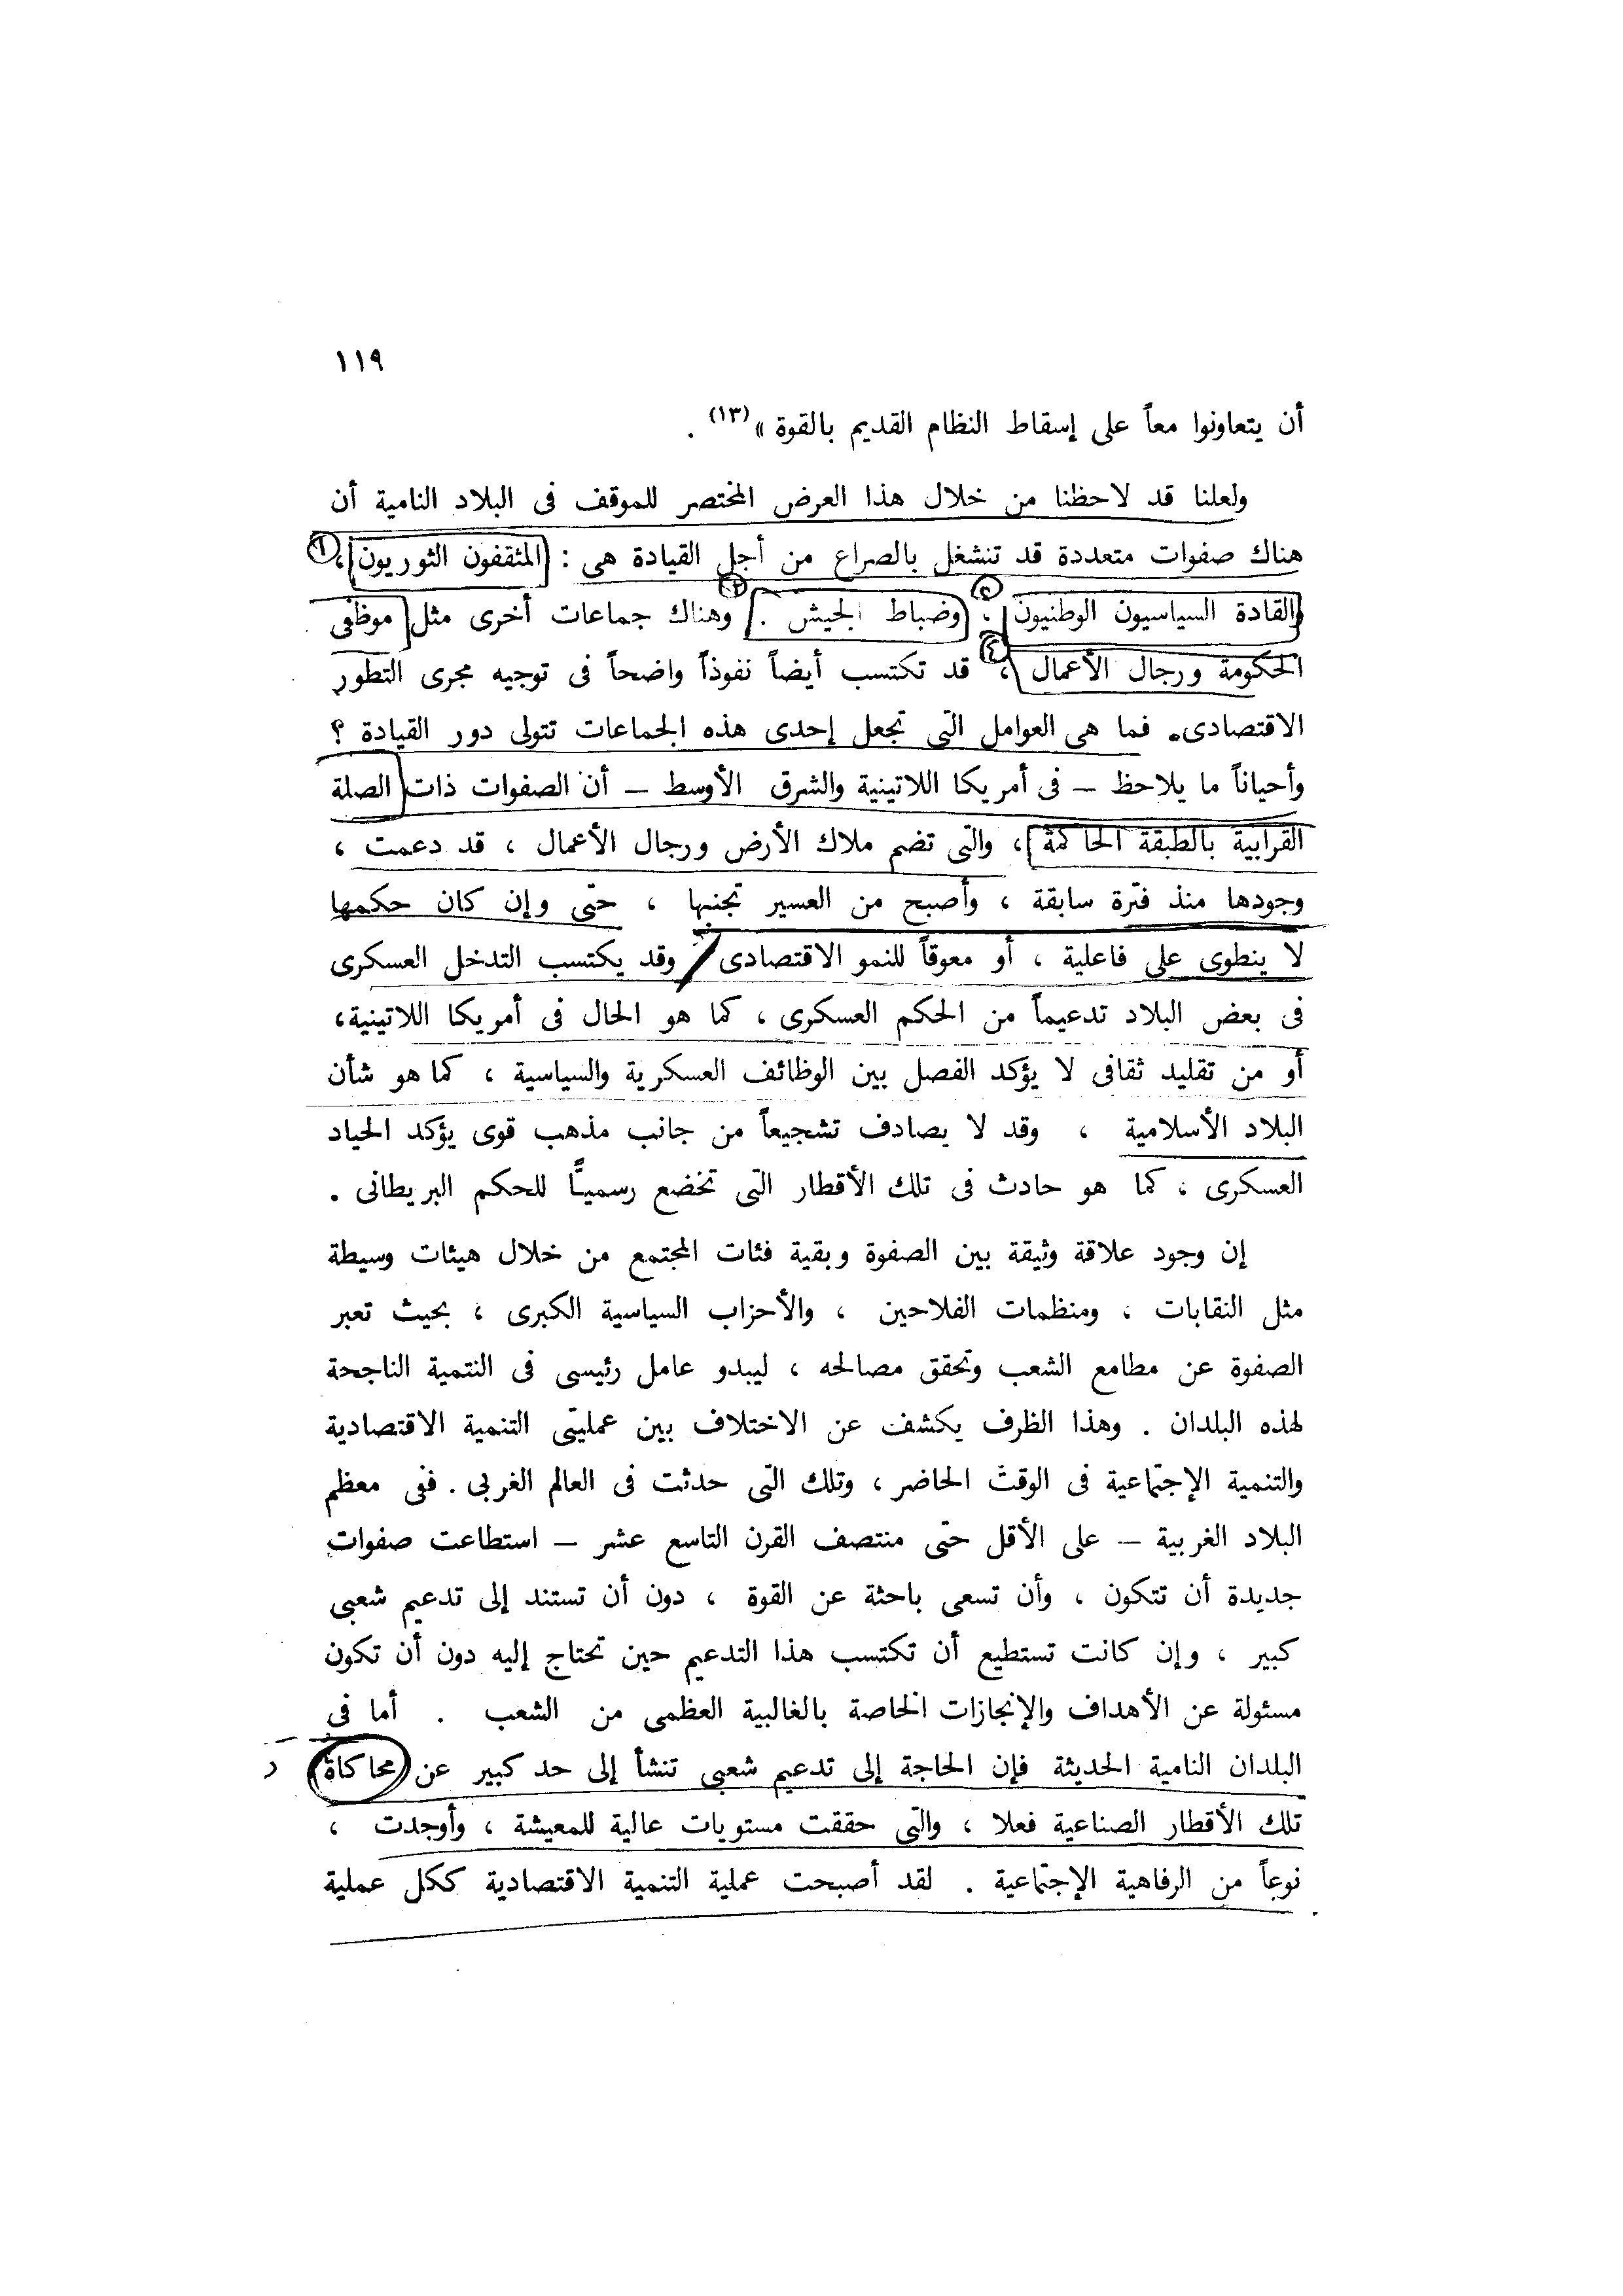 ١١٩
أن يتعاونوا معاً على إسقاط النظام القديم بالقوة » (١٣) .
ولعلنا قد لاحظنا من خلال هذا العرض المختصر للموقف فى البلاد النامية أن
هناك صفوات متعددة قد تنشغل بالصراع من أجل القيادة هى : المثقفون الثوريون ، ١
والقادة السياسيون الوطنيون ، ٢ وضباط الجيش . ٣ وهناك جماعات أخرى مثل موظفى
الحكومة ورجال الأعمال ، ٤ قد تكتسب أيضاً نفوذاً واضحاً فى توجيه مجرى التطور
الاقتصادى . فما هى العوامل التى تجعل إحدى هذه الجماعات تتولى دور القيادة ؟
وأحياناً ما يلاحظ – فى أمريكا اللاتينية والشرق الأوسط – أن الصفوات ذات الصلة
القرابية بالطبقة الحاكمة ، والتى تضم ملاك الأرض ورجال الأعمال ، قد دعمت ،
وجودها منذ فترة سابقة ، وأصبح من العسير تجنبها ، حتى وإن كان حكمها
لا ينطوى على فاعلية ، أو معوقاً للنمو الاقتصادى / وقد يكتسب التدخل العسكرى
فى بعض البلاد تدعيماً من الحكم العسكرى ، كما هو الحال فى أمريكا اللاتينية ،
أو من تقليد ثقافى لا يؤكد الفصل بين الوظائف العسكرية والسياسية ، كما هو شأن
البلاد الأسلامية ، وقد لا يصادف تشجيعاً من جانب مذهب قوى يؤكد الحياد
العسكرى ، كما هو حادث فى تلك الأقطار التى تخضع رسميًّا للحكم البريطانى .
إن وجود علاقة وثيقة بين الصفوة وبقية فئات المجتمع من خلال هيئات وسيطة
مثل النقابات ، ومنظمات الفلاحين ، والأحزاب السياسية الكبرى ، بحيث تعبر
الصفوة عن مطامع الشعب وتحقق مصالحه ، ليبدو عامل رئيسى فى التنمية الناجحة
لهذه البلدان . وهذا الظرف يكشف عن الاختلاف بين عمليتى التنمية الاقتصادية
والتنمية الإجتماعية فى الوقت الحاضر ، وتلك التى حدثت فى العالم الغربى . ففى معظم
البلاد الغربية – على الأقل حتى منتصف القرن التاسع عشر – استطاعت صفوات
جديدة أن تتكون ، وأن تسعى باحثة عن القوة ، دون أن تستند إلى تدعيم شعبى
كبير ، وإن كانت تستطيع أن تكتسب هذا التدعيم حين تحتاج إليه دون أن تكون
مسئولة عن الأهداف والإنجازات الخاصة بالغالبية العظمى من الشعب . أما فى
البلدان النامية الحديثة فإن الحاجة إلى تدعيم شعبى تنشأ إلى حد كبير عن محاكاة
تلك الأقطار الصناعية فعلا ، والتى حققت مستويات عالية للمعيشة ، وأوجدت ،
نوعاً من الرفاهية الإجتماعية . لقد أصبحت عملية التنمية الاقتصادية ككل عملية